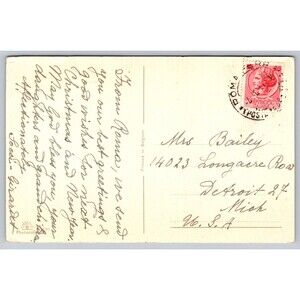 From Roma, we send
you our best greetings &
good wishes for next
Christmas and New Year.
May God bless you, your
daughter and grandchild
Affectionately
ROMA
POSTA
Mrs Bailey
14023 Longacre Road
Detroit 27
Mich
U.S.A